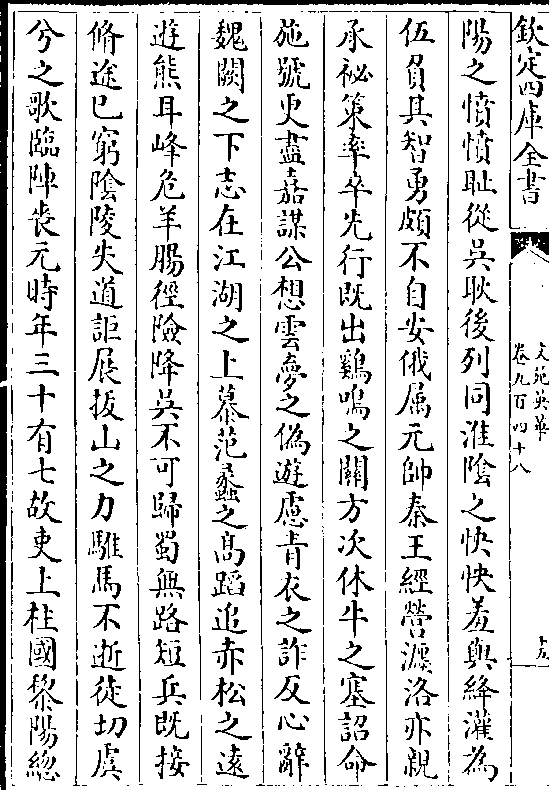 欽定四庫全書
文苑英華
卷九百四十八
陽之憤憤耻從吳耿後列同淮陰之怏怏羞與絳灌為
伍負其智勇頗不自安俄属元帥秦王經營瀍洛亦親
承祕策率卒先行既出鷄鳴之關方次休牛之塞詔命
施號更盡嘉謀公想雲夢之偽遊慮青衣之詐反心辭
魏闕之下志在江湖之上慕范蠡之髙蹈追赤松之遠
遊熊耳峰危羊腸徑險降吳不可歸蜀無路短兵既接
脩途已窮陰陵失道詎展拔山之力騅馬不逝徒切虞
兮之歌臨陣喪元時年三十有七故吏上柱國黎陽緫